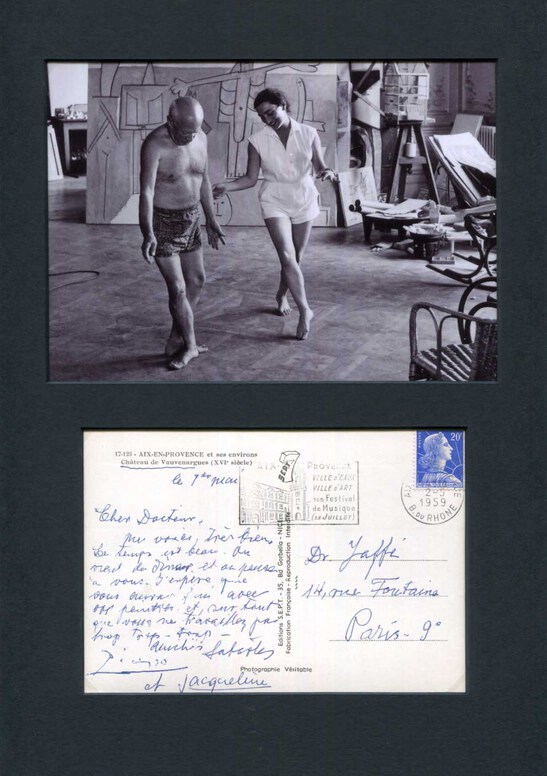 17-125 - AIX-EN-PROVENCE et ses environs
Château de Vauvenargues (XVIe siècle)
le 1er mai
Cher Docteur,
me voici, très bien.
Le temps est beau. On
vient de dîner, et on pense
à vous. J'espère que
vous avec
vos et, surtout
que vous ne travaillez pas
trop, trop - trop -
Sabartés
Picasso
et Jacqueline
Editions S.E.P.T. - 35, Bd Gorbella - NICE
Fabrication Française - Reproduction Interdite
Photographie Véritable
AIX PROVENCE
VILLE D'EAUX
VILLE D'ART
son Festival
de Musique
(10 JUILLET)
20F
2-5
1959
B. DU RHONE
Dr. Jaffé
14, rue Fontaine
Paris - 9e